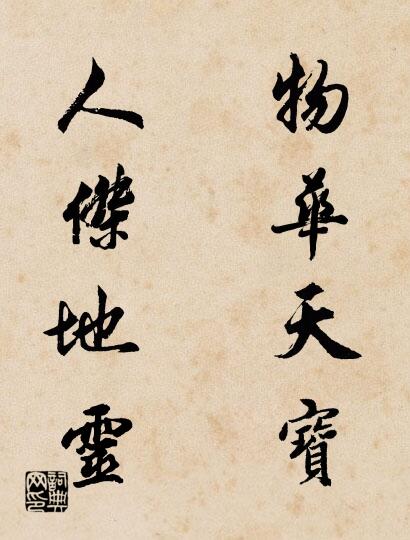 物華天寶
人傑地靈
詞典網